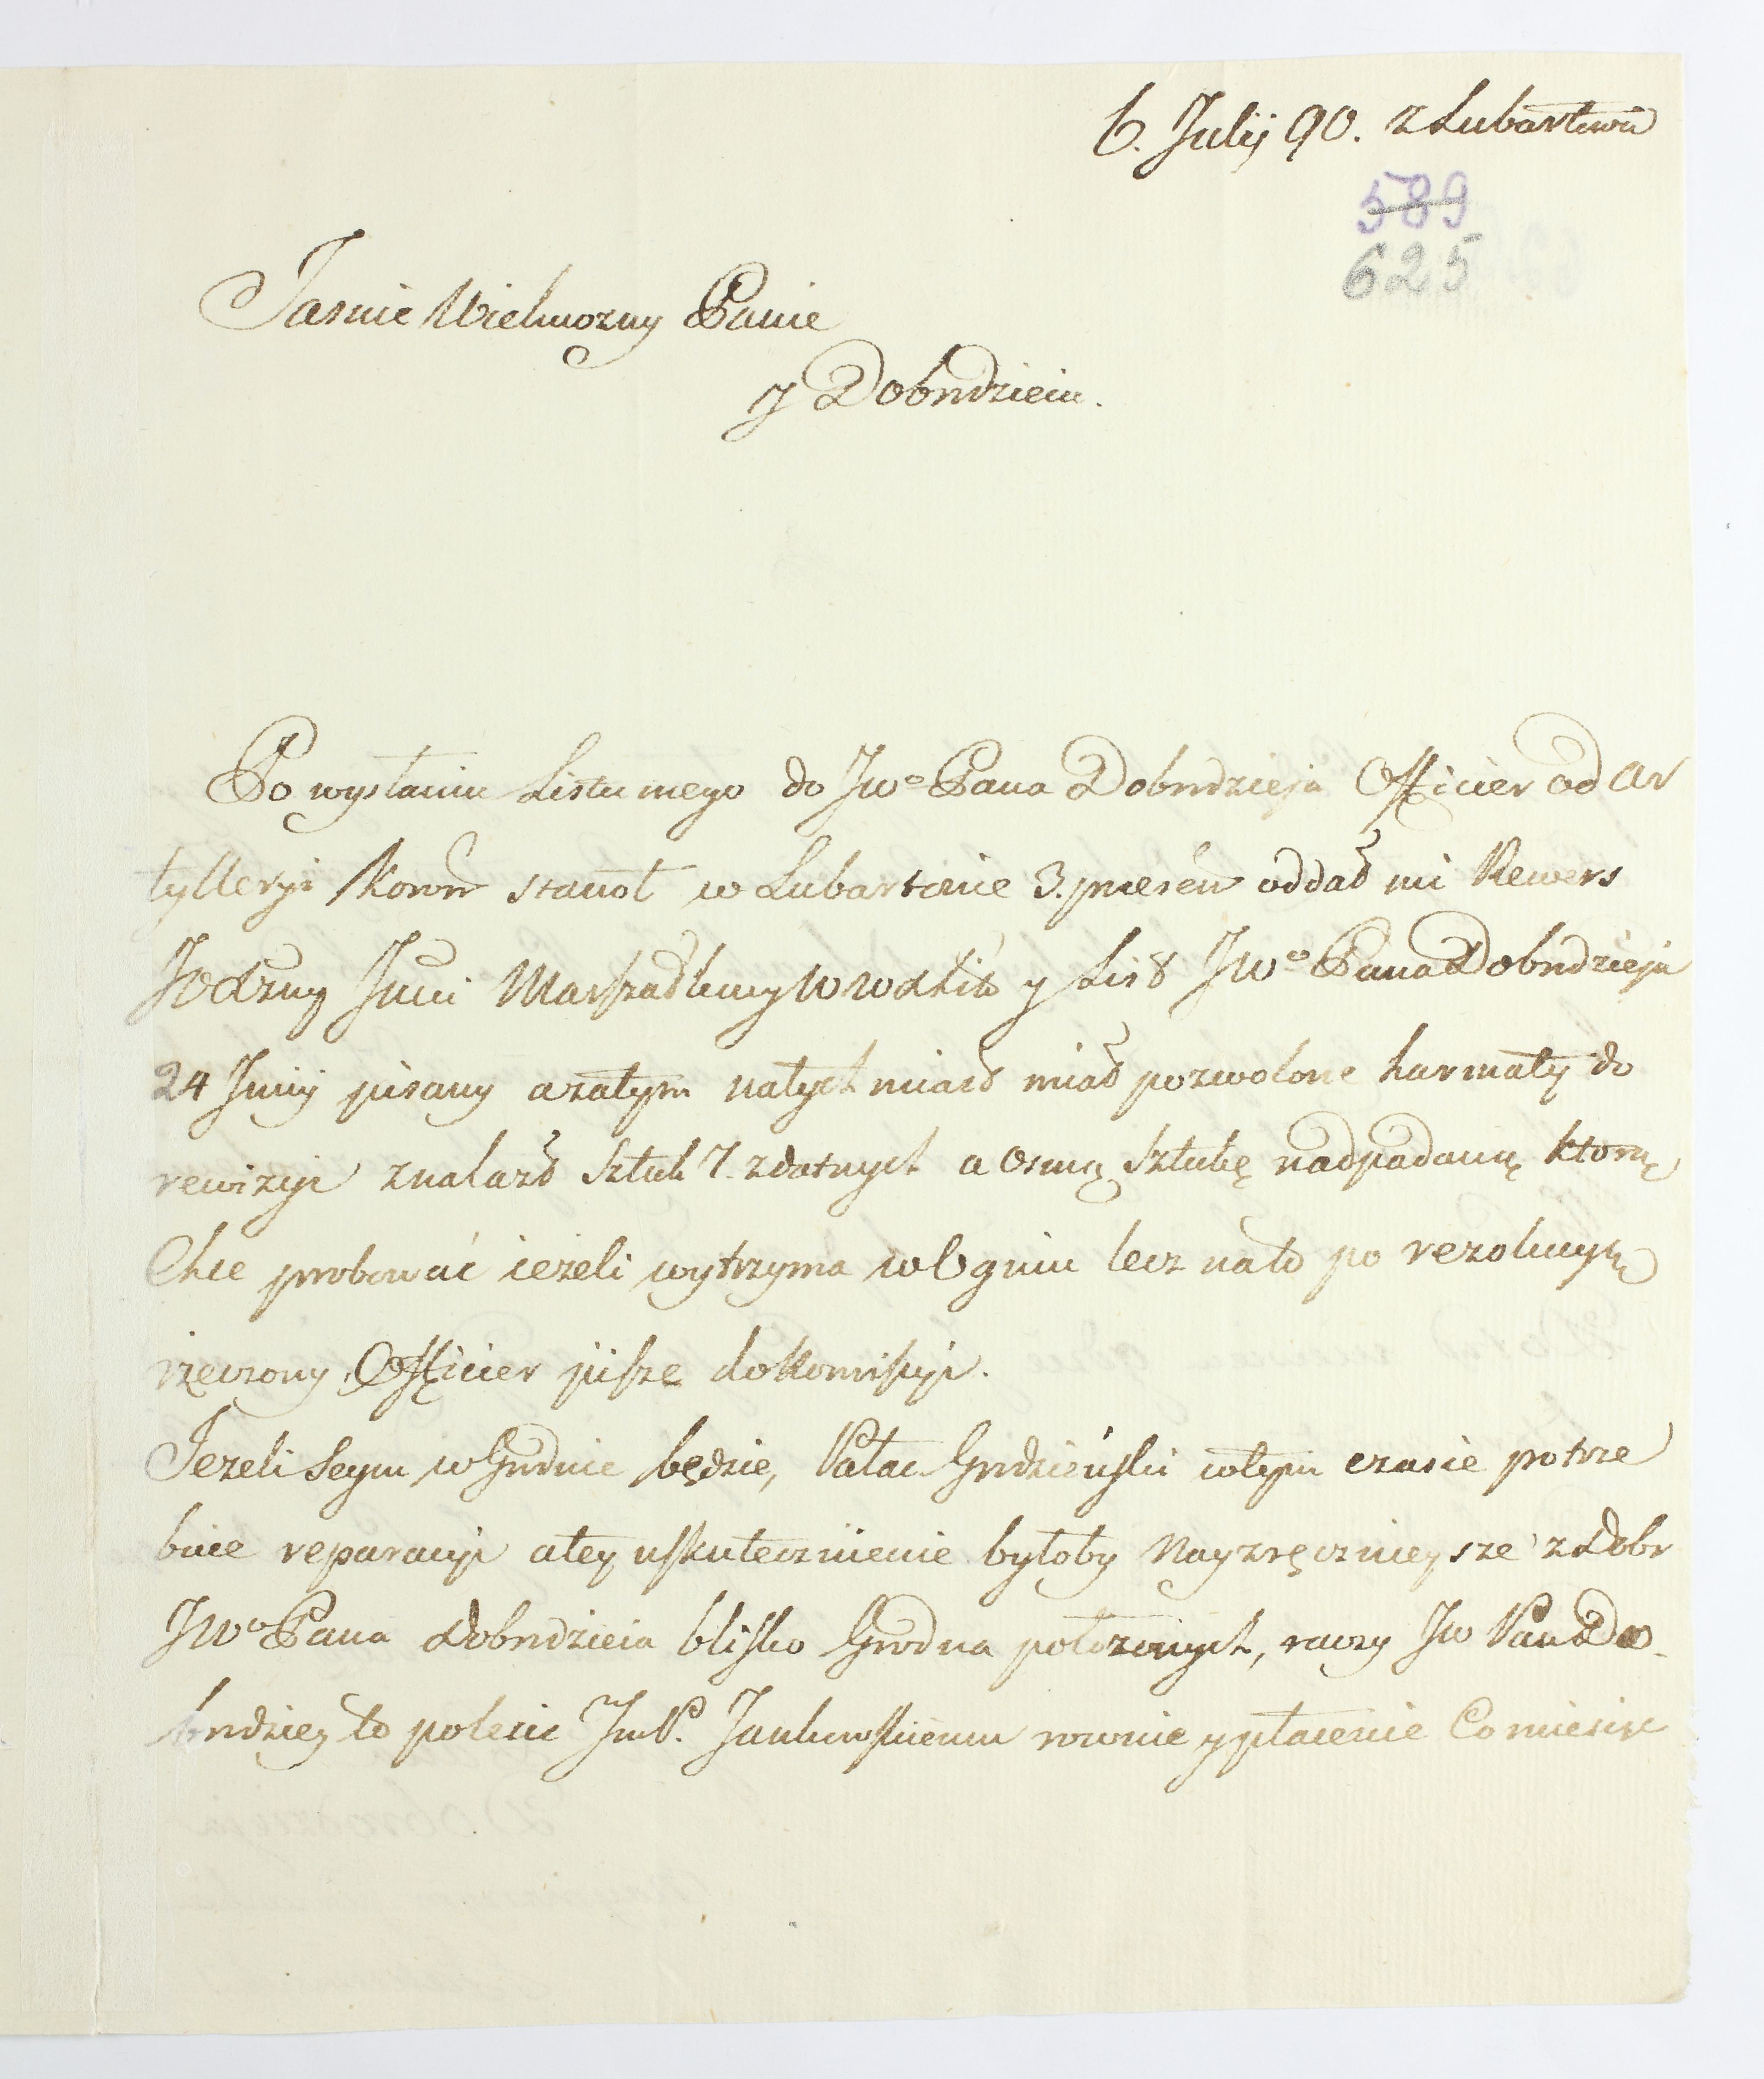 6. Julij 90. z Lubartowa
589
625
Jasnie Wielmozny Panie
y Dobrodzieiu.
Po wysłaniu Listu mego do JWo Pana Dobrodzieja Officier od Ar
tylleryi Koron stanoł w Lubartowie 3. præsen oddał mi Rewers
Jmci Marszałkowy W W X Lit y List JWo Pana Dobrodzieja
24 Junij pisany azatym natychmiast miał pozwolone harmaty do
rewizyi znalazł sztuk 7. zdatnych a osmą sztukę nadpadaną ktorą
Chce probować ieżeli wytrzyma w Ogniu lecz nato po rezolucyą
rzęczony Officier pisze do Komissyi.
Jezeli Seym w Grodnie będzie, Pałac Grodzieński w tym czasie potrze
buie reparacyi a tey uskutecznienie byłoby Nayzręczneysze z Dobr
JWo Pana Dobrodzieia blisko Grodna położonych, raczy JW Pan Do
brodziey to polecic JmP. Jankowskiemu rownie y płacenie Co miesiąc